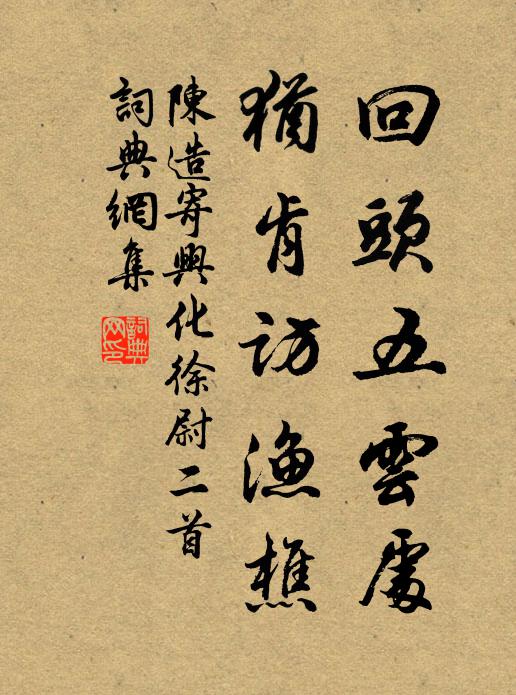 回頭五雲處
猶肯訪漁樵
陳造寄興化徐尉二首
詞典網集
詞典網印